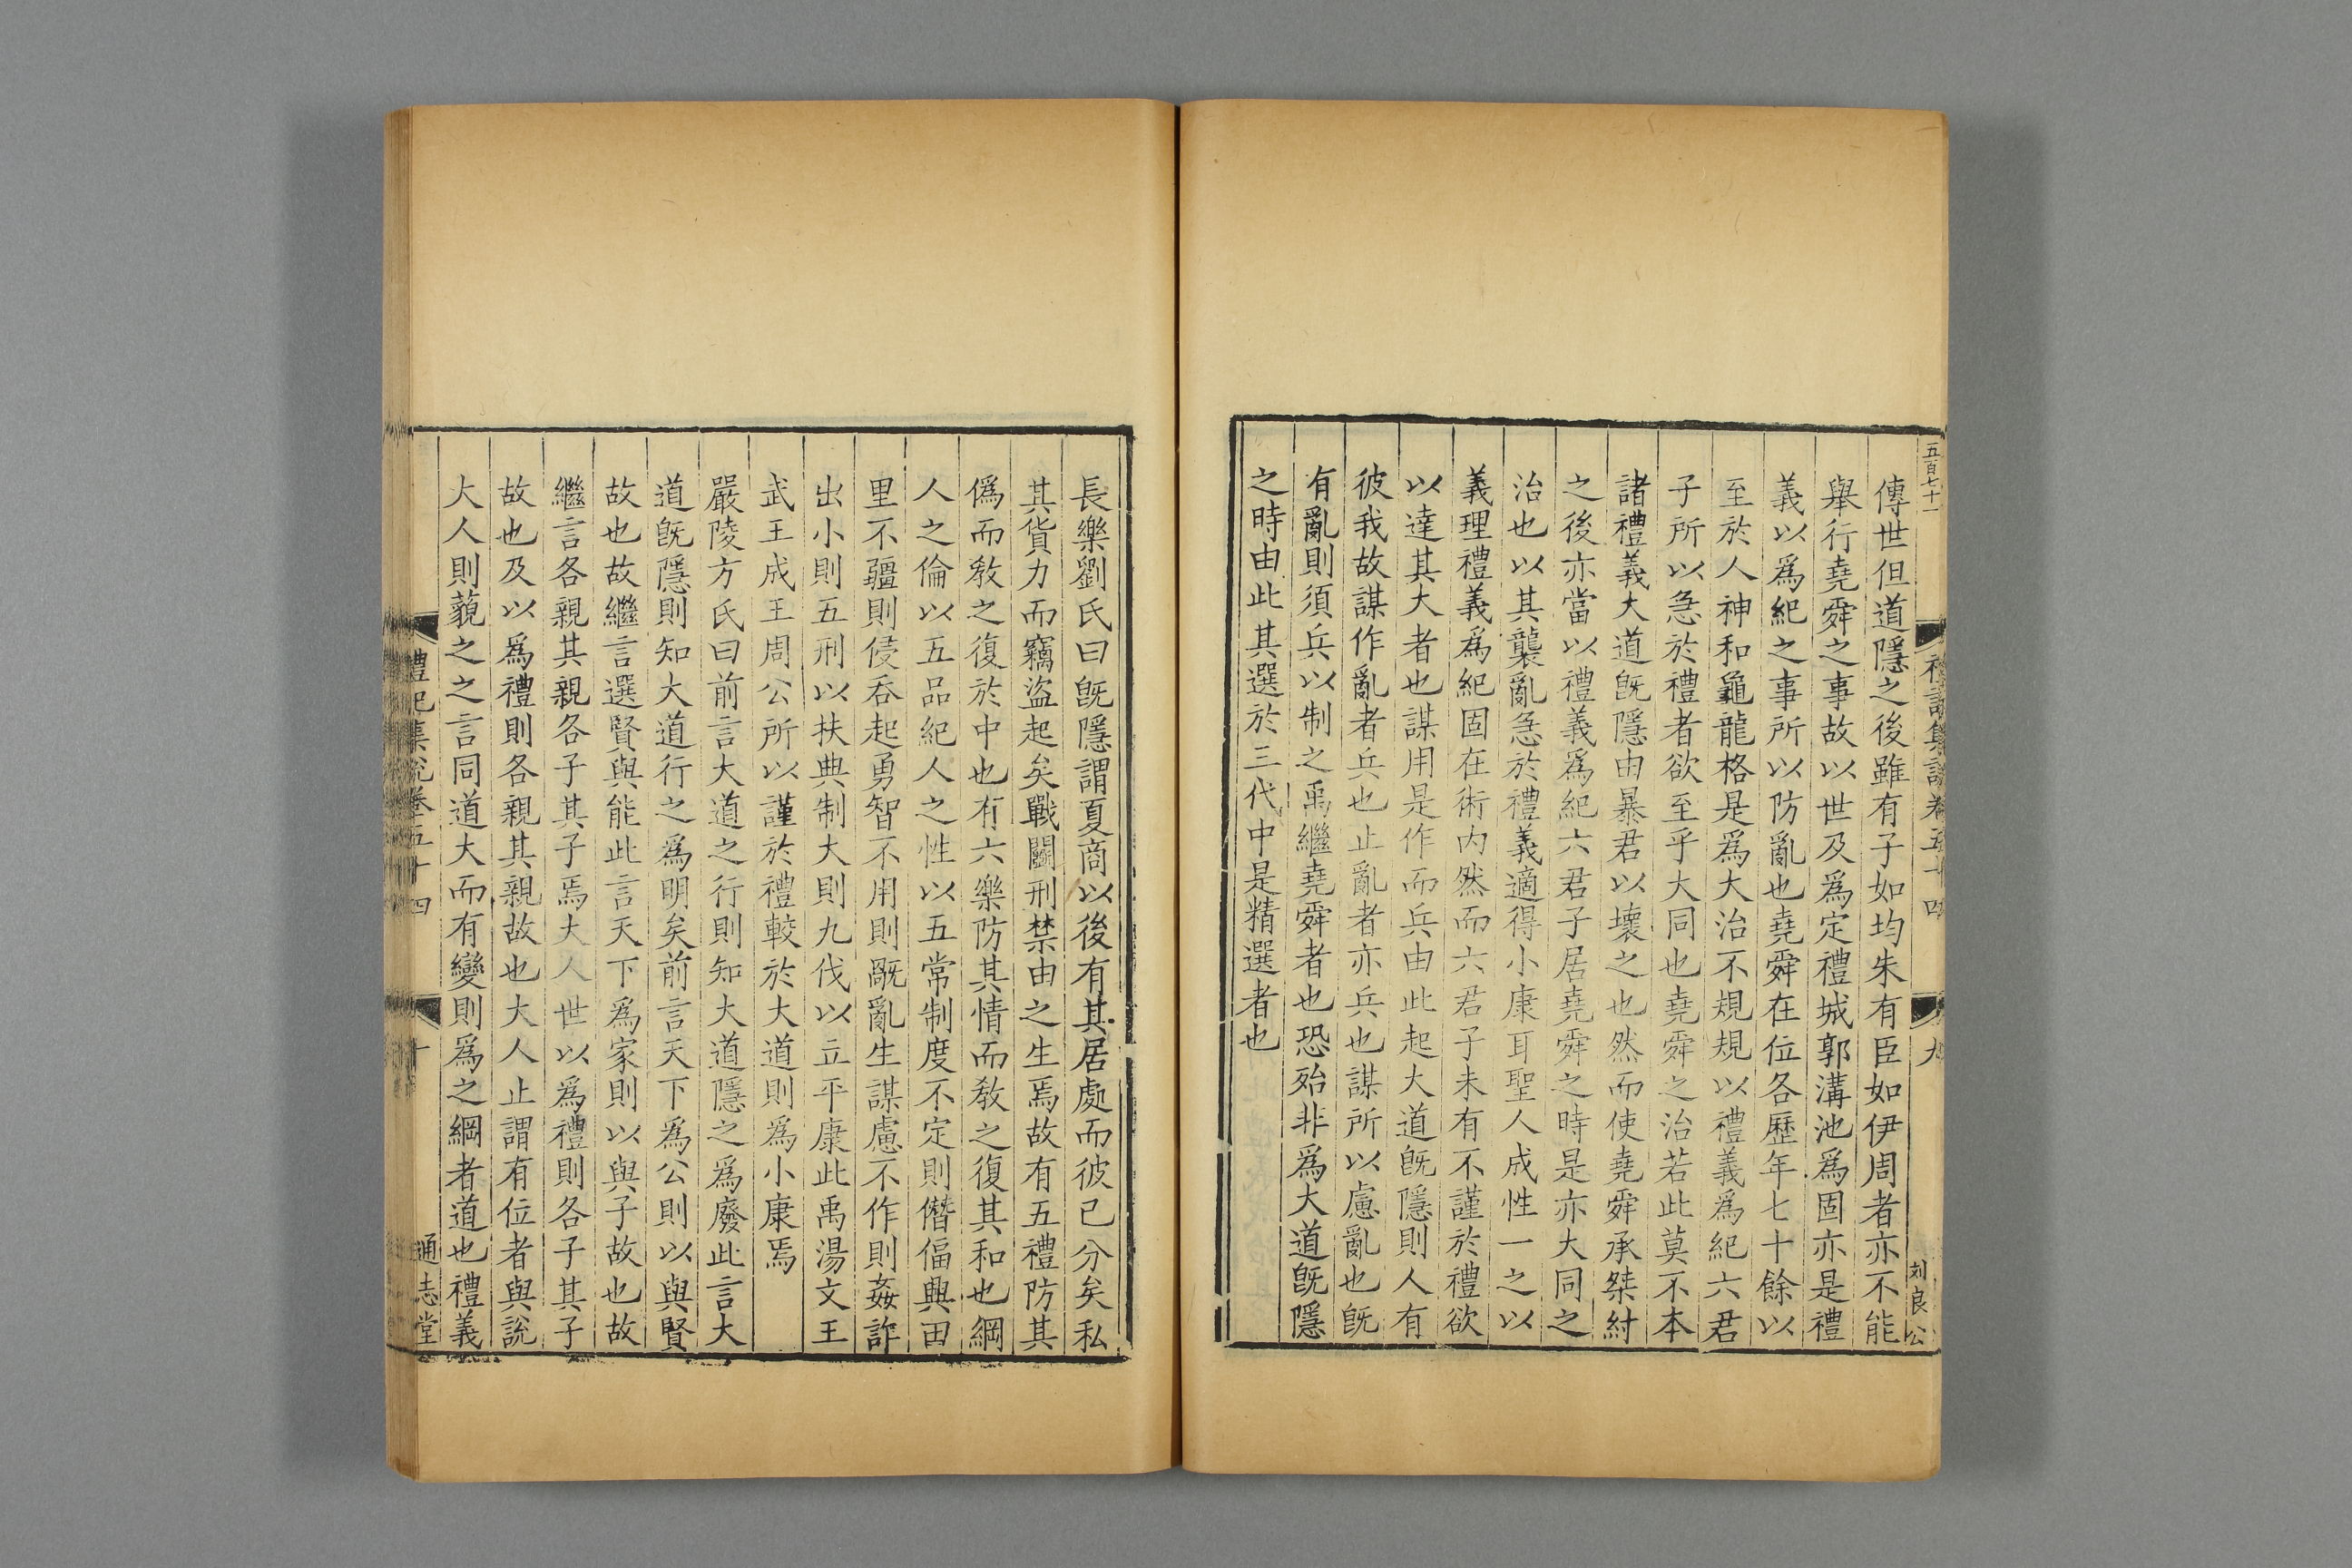 五百七十一
禮記集說卷五十四
九
刘良公
傳世但道隱之後雖有子如均朱有臣如伊周者亦不能
舉行堯舜之事故以世及爲定禮城郭溝池爲固亦是禮
義以爲紀之事所以防亂也堯舜在位各歷年七十餘以
至於人神和龜龍格是爲大治不規規以禮義爲紀六君
子所以急於禮者欲至乎大同也堯舜之治若此莫不本
諸禮義大道旣隱由暴君以壞之也然而使堯舜承桀紂
之後亦當以禮義爲紀六君子居堯舜之時是亦大同之
治也以其襲亂急於禮義適得小康耳聖人成性一之以
義理禮義爲紀固在術内然而六君子未有不謹於禮欲
以達其大者也謀用是作而兵由此起大道旣隱則人有
彼我故謀作亂者兵也止亂者亦兵也謀所以慮亂也旣
有亂則須兵以制之禹繼堯舜者也恐殆非爲大道旣隱
之時由此其選於三代中是精選者也
長樂劉氏曰旣隱謂夏商以後有其居處而彼已分矣私
其貨力而竊盜起矣戰鬭刑禁由之生焉故有五禮防其
僞而敎之復於中也有六樂防其情而敎之復其和也綱
人之倫以五品紀人之性以五常制度不定則僭偪興田
里不疆則侵吞起勇智不用則厭亂生謀慮不作則姦詐
出小則五刑以扶典制大則九伐以立平康此禹湯文王
武王成王周公所以謹於禮較於大道則爲小康焉
嚴陵方氏曰前言大道之行則知大道隱之爲廢此言大
道旣隱則知大道行之爲明矣前言天下爲公則以與賢
故也故繼言選賢與能此言天下爲家則以與子故也故
繼言各親其親各子其子焉大人世以爲禮則各子其子
故也及以爲禮則各親其親故也大人止謂有位者與說
大人則藐之之言同道大而有變則爲之綱者道也禮義
禮記集說卷五十四
十
通志堂